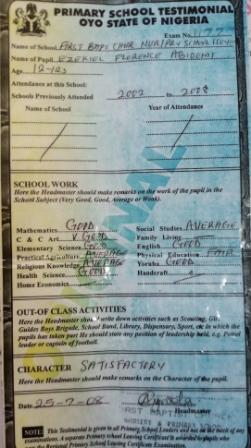 PRIMARY SCHOOL TESTIMONIAL
OYO STATE OF NIGERIA
Exam No. 1177
Name of School: FIRST BAPT CHUR NUR/PRY SCHOOL
Name of Pupil: EZEKIEL FLORENCE ABIDEMI
Age 12 yrs
Attendance at this School:
Schools Previously Attended 2002 to 2008
Name of School Year of Attendance
SCHOOL WORK
Here the Headmaster should make remarks on the work of the pupil in the
School Subject (Very Good, Good, Average or Weak)
Mathematics GOOD Social Studies AVERAGE
C & C Art V. GOOD Family Living
Elementary Science GOOD English GOOD
Practical Agriculture AVERAGE Physical Education FAIR
Religious Knowledge AVERAGE Yoruba GOOD
Health Science GOOD Handcraft
Home Economics
OUT-OF CLASS ACTIVITIES
Here the Headmaster should write down activities such as Scouting, Girl
Guides Boys Brigade, School Band, Library, Dispensary, Sport, etc in which the
pupils has taken part He should state any position of leadership held, e.g. Pound
leader or captain of football.
CHARACTER SATISFACTORY
Here the Headmaster should make remarks on the Character of the pupil.
Date 25-7-08 Headmaster
NURSERY & PRIMARY SCHOOL
NOTE This Testimonial is given to all Primary School Leavers and not on the basis of any
examinations. A separate Primary School Leaving Certificate is awarded to pupils who